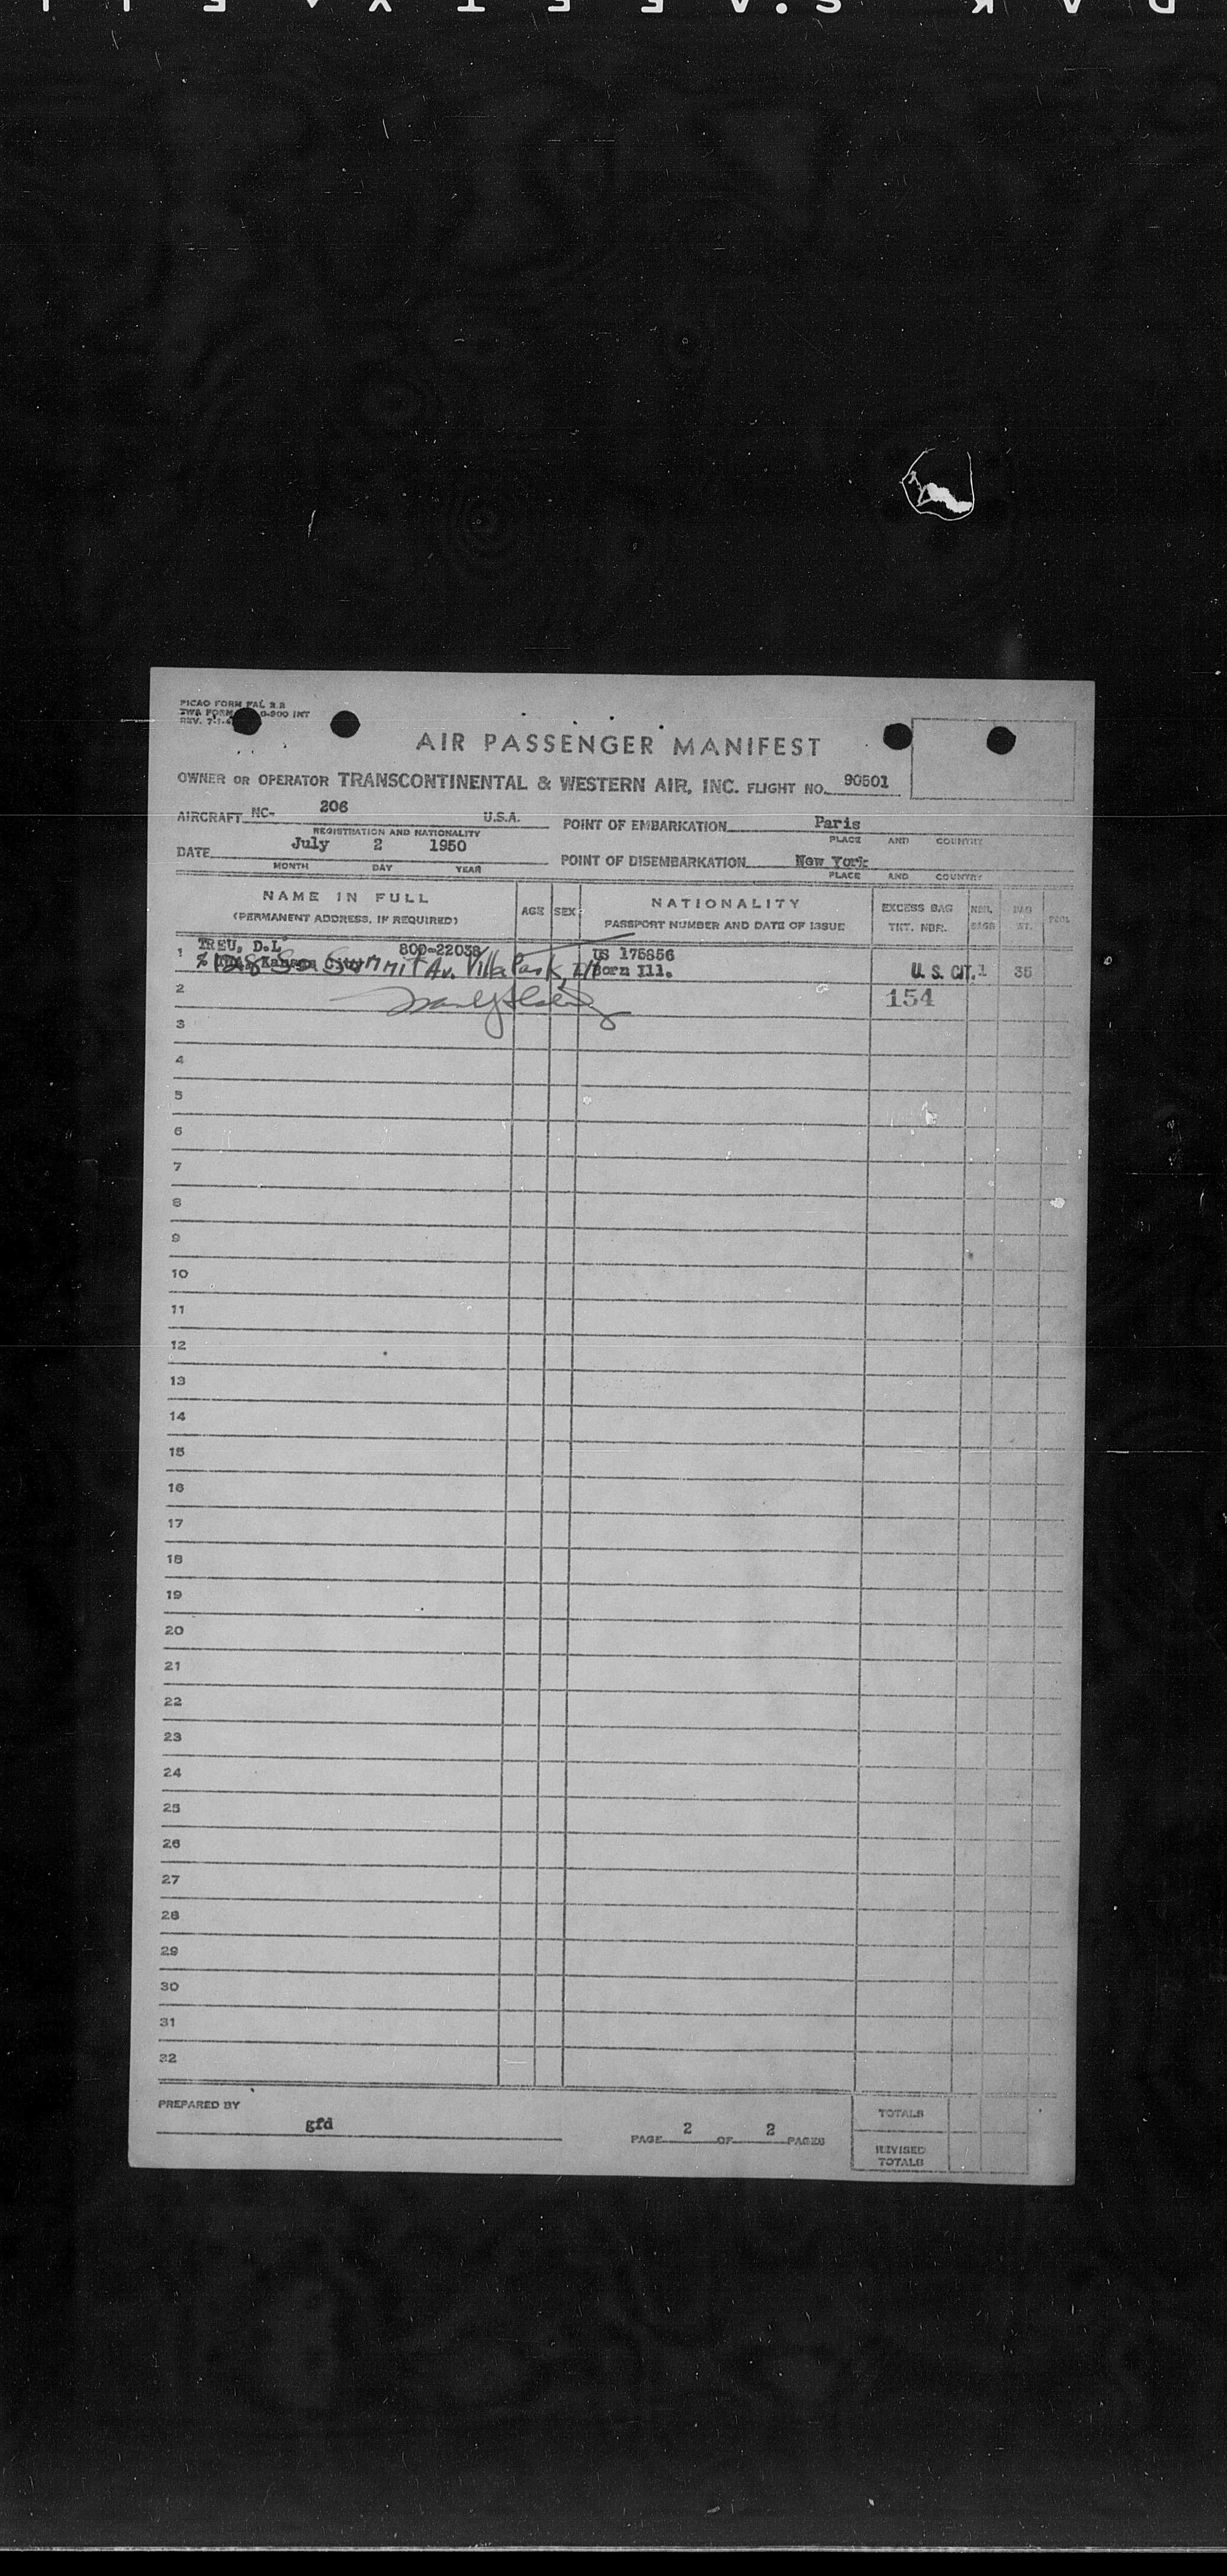 PICAO FORM FAL 2.2
TWA FORM 0-900 INT
REV. 7-1-4
AIR PASSENGER MANIFEST
OWNER OR OPERATOR TRANSCONTINENTAL & WESTERN AIR, INC. FLIGHT NO. 90501
AIRCRAFT NC- 206 U.S.A. POINT OF EMBARKATION Paris
REGISTRATION AND NATIONALITY PLACE AND COUNTRY
DATE July 2 1950 POINT OF DISEMBARKATION New York
MONTH DAY YEAR PLACE AND COUNTRY
NAME IN FULL AGE SEX NATIONALITY EXCESS BAG
(PERMANENT ADDRESS, IF REQUIRED) PASSPORT NUMBER AND DATE OF ISSUE TKT. NBR.
TREU, D.L 800-22038 US 175856
1 % Kansas City Summit Av. Villa Park, Ill Born Ill. U. S. CIT. 1 35
2 154
3
4
5
6
7
8
9
10
11
12
13
14
15
16
17
18
19
20
21
22
23
24
25
26
27
28
29
30
31
32
PREPARED BY gfd
PAGE 2 OF 2 PAGES
TOTALS
REVISED
TOTALS